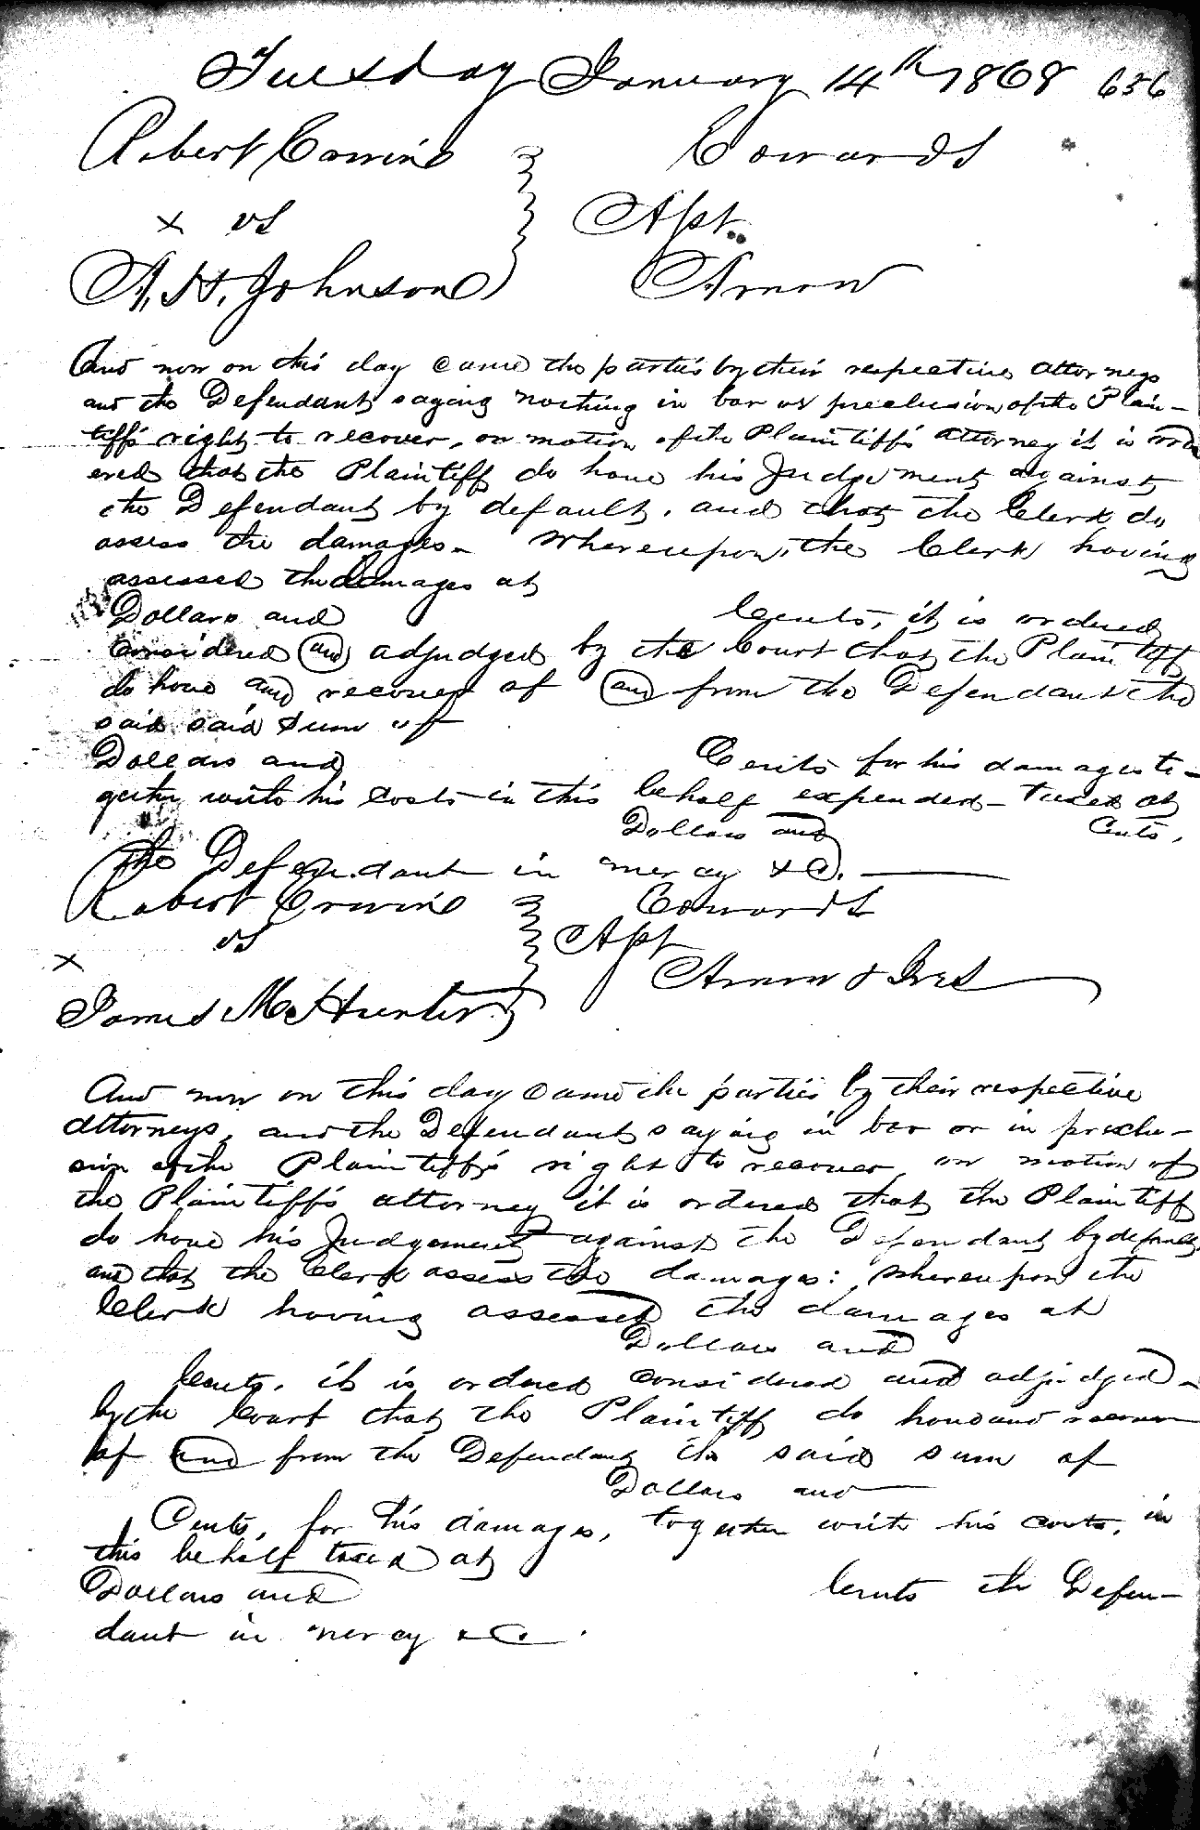 Tuesday January 14th 1868 636
Robert Corwine Edwards
x vs Apt.
A. H. Johnson Arnow
And now on this day came the parties by their respective attorneys
and the Defendant saying nothing in bar or preclusion of the Plain-
tiff's right to recover, on motion of the Plaintiff's attorney it is ord
ered that the Plaintiff do have his Judgement against
the Defendant by default, and that the Clerk do
assess the damages - Whereupon, the Clerk having
assessed the damages at
Dollars and Cents, it is ordered
considered and adjudged by the Court that the Plaintiff
do have and recover of and from the Defendant the
said said sum of
Dollars and Cents for his damages to-
gether with his costs in this behalf expended - taxed at
Dollars and Cents.
The Defendant in mercy &C.
Robert Corwine Edwards
vs Apt
x Arnow & Ives
James M. Hunter
And now on this day came the parties by their respective
attorneys, and the Defendant saying in bar or in preclu-
sion of the Plaintiff's right to recover, on motion of
the Plaintiff's attorney it is ordered that the Plaintiff
do have his Judgement against the Defendant by default
and that the Clerk assess the damages: Whereupon the
Clerk having assessed the damages at
Dollars and
Cents, it is ordered considered and adjudged -
by the Court that the Plaintiff do have and recover
of and from the Defendant the said sum of
Dollars and
Cents, for his damages, together with his costs, in
this behalf taxed at
Dollars and Cents the Defen-
dant in mercy &C.